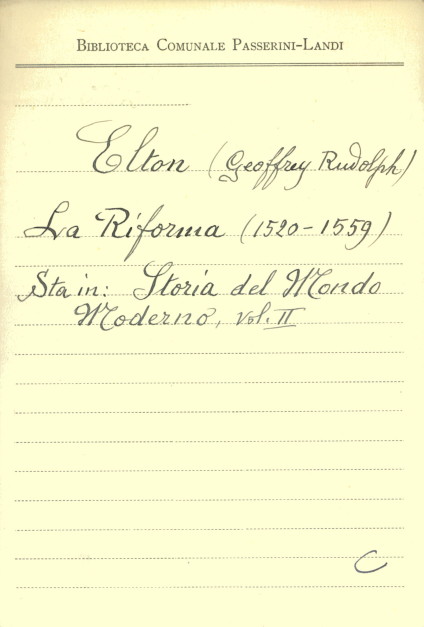 Biblioteca Comunale Passerini-Landi
Elton (Geoffrey Rudolph)
La Riforma (1520-1559)
Sta in: Storia del Mondo
Moderno, vol. II
C